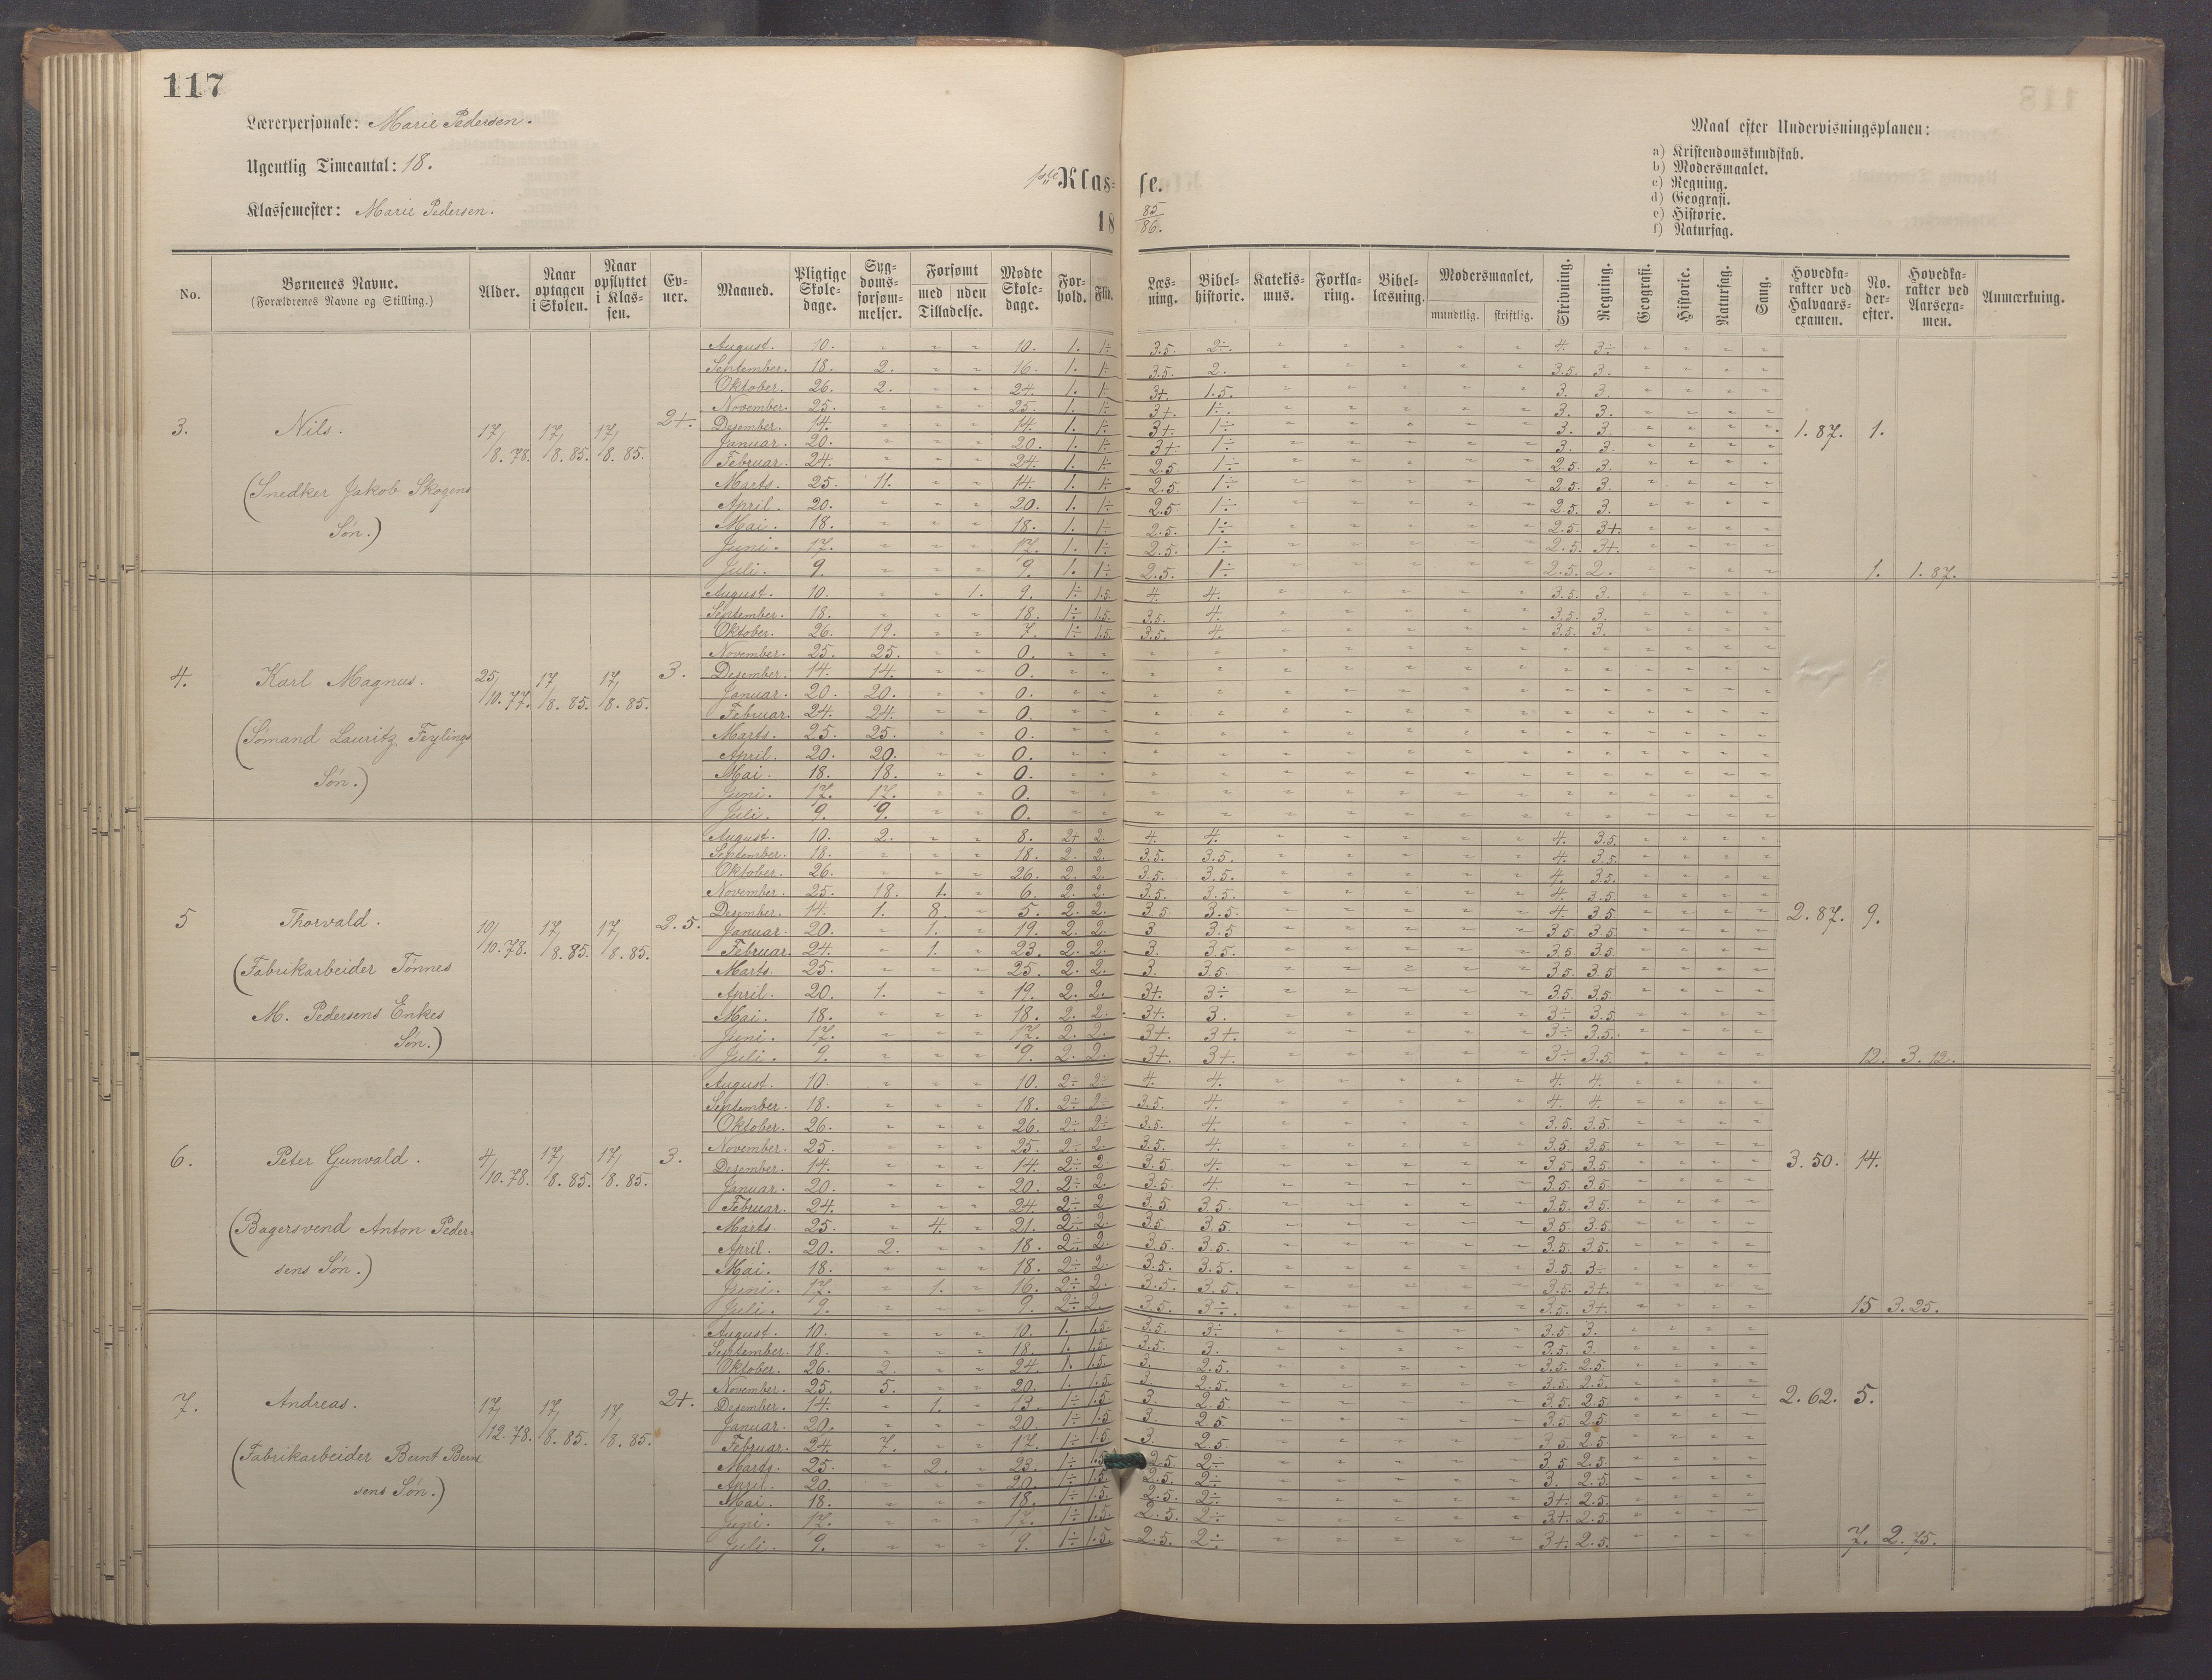 117
Lærerpersonale: Marie Pedersen.
Ugentlig Timeantal: 18.
Klassemester: Marie Pedersen.
Klasse.
18 85/86.
Maal efter Undervisningsplanen:
a) Kristendomskundskab.
b) Modersmaalet.
c) Regning.
d) Geografi.
e) Historie.
f) Naturfag.
No. | Børnenes Navne. (Forældrenes Navne og Stilling.) | Alder. | Naar optagen i Skolen. | Naar opflyttet i Klassen. | Evner. | Maaned. | Pligtige Skoledage. | Sygdomsforsømmelser. | Forsømt med | uden Tilladelse. | Mødte Skoledage. | Forhold. | Flid. | Læsning. | Bibelhistorie. | Katekismus. | Forklaring. | Bibellæsning. | Modersmaalet, mundtlig. | skriftlig. | Skrivning. | Regning. | Geografi. | Historie. | Naturfag. | Sang. | Hovedkarakter ved Halvaarsexamen. | No. derefter. | Hovedkarakter ved Aarsexamen. | Anmærkning.
3. Nils. 17/8.78. 17/8.85. 17/8.85. 2+. 1.87. 1.
(Snedker Jakob Skogens
Søn.)
August. 10. " " " 10. 1. 1÷ 3.5. 2÷. 4. 3÷
September. 18. 2. " " 16. 1. 1÷ 3.5. 2. 3.5. 3.
Oktober. 26. 2. " " 24. 1. 1÷ 3+. 1.5. 3. 3.
November. 25. " " " 25. 1. 1÷ 3+. 1÷. 3. 3.
Desember. 14. " " " 14. 1. 1÷ 3+. 1÷ 3. 3.
Januar. 20. " " " 20. 1. 1÷ 3+. 1÷ 3. 3.
Februar. 24. " " " 24. 1. 1÷ 2.5. 1÷ 2.5. 3.
Marts. 25. 11. " " 14. 1. 1÷ 2.5. 1÷ 2.5. 3.
April. 20. " " " 20. 1. 1÷ 2.5. 1÷ 2.5. 3.
Mai. 18. " " " 18. 1. 1÷ 2.5. 1÷ 2.5. 3+.
Juni. 17. " " " 17. 1. 1÷ 2.5. 1÷ 2.5. 3+.
Juli. 9. " " " 9. 1. 1÷ 2.5. 1÷ 2.5. 2. 1. 1.87.
4. Karl Magnus. 25/10.77. 17/8.85. 17/8.85. 3.
(Sømand Lauritz Feylings
Søn.)
August. 10. " " 1. 9. 1÷ 1.5. 4. 4. 3.5. 3.
September. 18. " " " 18. 1÷ 1.5. 3.5. 4. 3.5. 3.
Oktober. 26. 19. " " 7. 1÷ 1.5. 3.5. 4. 3.5. 3.
November. 25. 25. " " 0.
Desember. 14. 14. " " 0.
Januar. 20. 20. " " 0.
Februar. 24. 24. " " 0.
Marts. 25. 25. " " 0.
April. 20. 20. " " 0.
Mai. 18. 18. " " 0.
Juni. 17. 17. " " 0.
Juli. 9. 9. " " 0.
5 Thorvald. 10/10.78. 17/8.85. 17/8.85. 2.5. 2.87. 9.
(Fabrikarbeider Tønnes
M. Pedersens Enkes
Søn.)
August. 10. 2. " " 8. 2+ 2. 4. 4. 4. 3.5.
September. 18. " " " 18. 2. 2. 3.5. 3.5. 4. 3.5.
Oktober. 26. " " " 26. 2. 2. 3.5. 3.5. 4. 3.5.
November. 25. 18. 1. " 6. 2. 2. 3.5. 3.5. 4. 3.5.
Desember. 14. 1. 8. " 5. 2. 2. 3.5. 3.5. 4. 3.5
Januar. 20. " 1. " 19. 2. 2. 3. 3.5 3.5 3.5.
Februar. 24. " 1. " 23. 2. 2. 3. 3.5. 3.5 3.5.
Marts. 25. " " " 25. 2. 2. 3. 3.5. 3.5. 3.5
April. 20. 1. " " 19. 2. 2. 3+. 3÷ 3.5. 3.5
Mai. 18. " " " 18. 2. 2. 3+. 3. 3÷ 3.5.
Juni. 17. " " " 17. 2. 2. 3+. 3+. 3÷ 3.5.
Juli. 9. " " " 9. 2. 2. 3+. 3+. 3÷ 3.5. 12. 3.12.
6. Peter Gunvald. 4/10.78. 17/8.85. 17/8.85. 3. 3.50. 14.
(Bagersvend Anton Peder-
sens Søn.)
August. 10. " " " 10. 2÷ 2÷ 4. 4. 4. 4.
September. 18. " " " 18. 2÷ 2÷ 3.5. 4. 4. 4.
Oktober. 26. " " " 26. 2÷ 2÷ 3.5. 4. 3.5. 3.5.
November. 25. " " " 25. 2÷ 2. 3.5. 4. 3.5. 3.5.
Desember. 14. " " " 14. 2÷ 2. 3.5. 4. 3.5. 3.5.
Januar. 20. " " " 20. 2÷ 2. 3.5 4. 3.5. 3.5
Februar. 24. " " " 24. 2÷ 2. 3.5 3.5. 3.5. 3.5.
Marts. 25. " 4. " 21. 2÷ 2. 3.5. 3.5. 3.5. 3.5.
April. 20. 2. " " 18. 2÷ 2. 3.5. 3.5. 3.5. 3.5.
Mai. 18. " " " 18. 2÷ 2. 3.5. 3.5. 3.5. 3÷
Juni. 17. " 1. " 16. 2÷ 2. 3.5. 3.5. 3.5. 3+.
Juli. 9. " " " 9. 2÷ 2. 3.5. 3÷. 3.5. 3+. 15 3.25.
7. Andreas. 17/12.78. 17/8.85. 17/8.85. 2+. 2.62. 5.
(Fabrikarbeider Bernt Bern
sens Søn.)
August. 10. " " " 10. 1. 1.5. 3.5. 3÷ 3.5. 3.
September. 18. " " " 18. 1. 1.5. 3.5. 3. 3.5. 3.
Oktober. 26. 2. " " 24. 1. 1.5. 3. 2.5. 3.5. 2.5.
November. 25. 5. " " 20. 1. 1.5 3. 2.5. 3.5. 2.5.
Desember. 14. " 1. " 13. 1÷ 1.5 3. 2.5 3.5 2.5.
Januar. 20. " " " 20. 1÷ 1.5 3 2.5. 3.5 2.5
Februar. 24. 7. " " 17. 1÷ 1.5 3. 2.5. 3.5 2.5.
Marts. 25. " 2. " 23. 1÷ 1.5 2.5. 2÷ 3.5. 2.5.
April. 20. " " " 20. 1÷ 1.5. 2.5. 2÷ 3. 2.5.
Mai. 18. " " " 18. 1÷ 1.5. 2.5. 2÷ 3+. 2.5.
Juni. 17. " " " 17. 1÷ 1.5. 2.5. 2÷ 3+. 2.5
Juli. 9. " " " 9. 1÷ 1.5. 2.5. 2÷ 3+. 2.5. 7. 2.75.